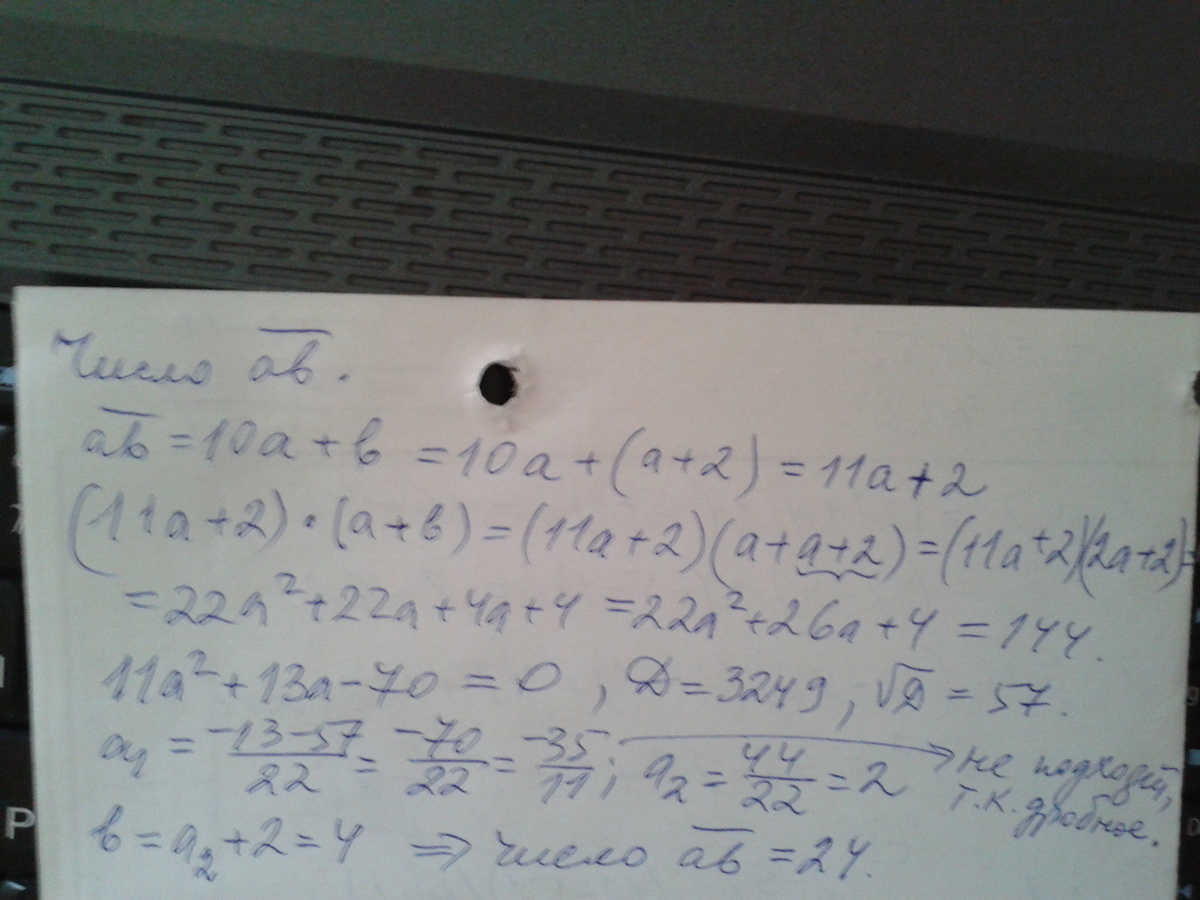 Число ab̅.
ab̅ = 10a + b = 10a + (a+2) = 11a + 2
(11a+2)·(a+b) = (11a+2)(a+a+2) = (11a+2)(2a+2) =
= 22a² + 22a + 4a + 4 = 22a² + 26a + 4 = 144.
11a² + 13a - 70 = 0, D = 3249, √D = 57.
a₁ = (-13-57)/22 = -70/22 = -35/11; a₂ = 44/22 = 2 → не подходит, т.к. дробное.
b = a₂ + 2 = 4 ⇒ число ab̅ = 24.
P